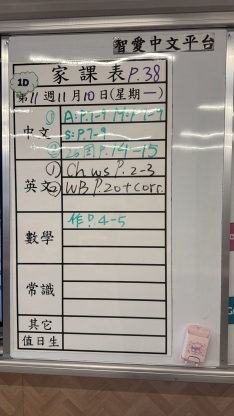 智愛中文平台
家課表 P.38
1D
第11週11月10日(星期一)
中文 ① A: P.1-9
S: P.7-9
② 20周 P.14-15
英文 ① Ch ws P. 2-3
② WB P.20+corr.
數學 作 P. 4-5
常識
其它
值日生